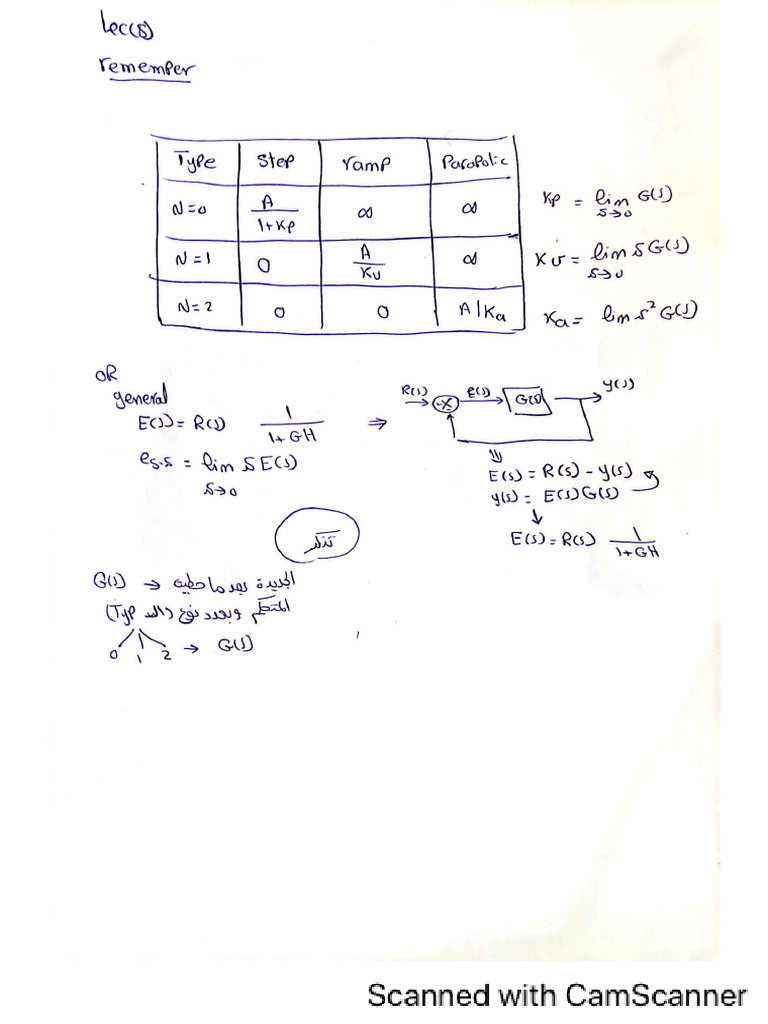 Lec(5)
remember
Type Step ramp Parapolic
N=0 A/1+Kp ∞ ∞
Kp = lim s→0 G(s)
N=1 0 A/Kv ∞
Kv = lim s→0 SG(s)
N=2 0 0 A/Ka
Ka = lim s² G(s)
OR
general
E(s) = R(s) 1/1+GH ⇒
es.s = lim s→0 SE(s)
R(s) E(s) G(s) y(s)
E(s) = R(s) - y(s)
y(s) = E(s) G(s)
E(s) = R(s) 1/1+GH
تذكر
G(s) → الجديدة بعد ما حطيت
المتحكم وبحدد نوع (الـ Typ)
0 1 2 → G(s)
Scanned with CamScanner